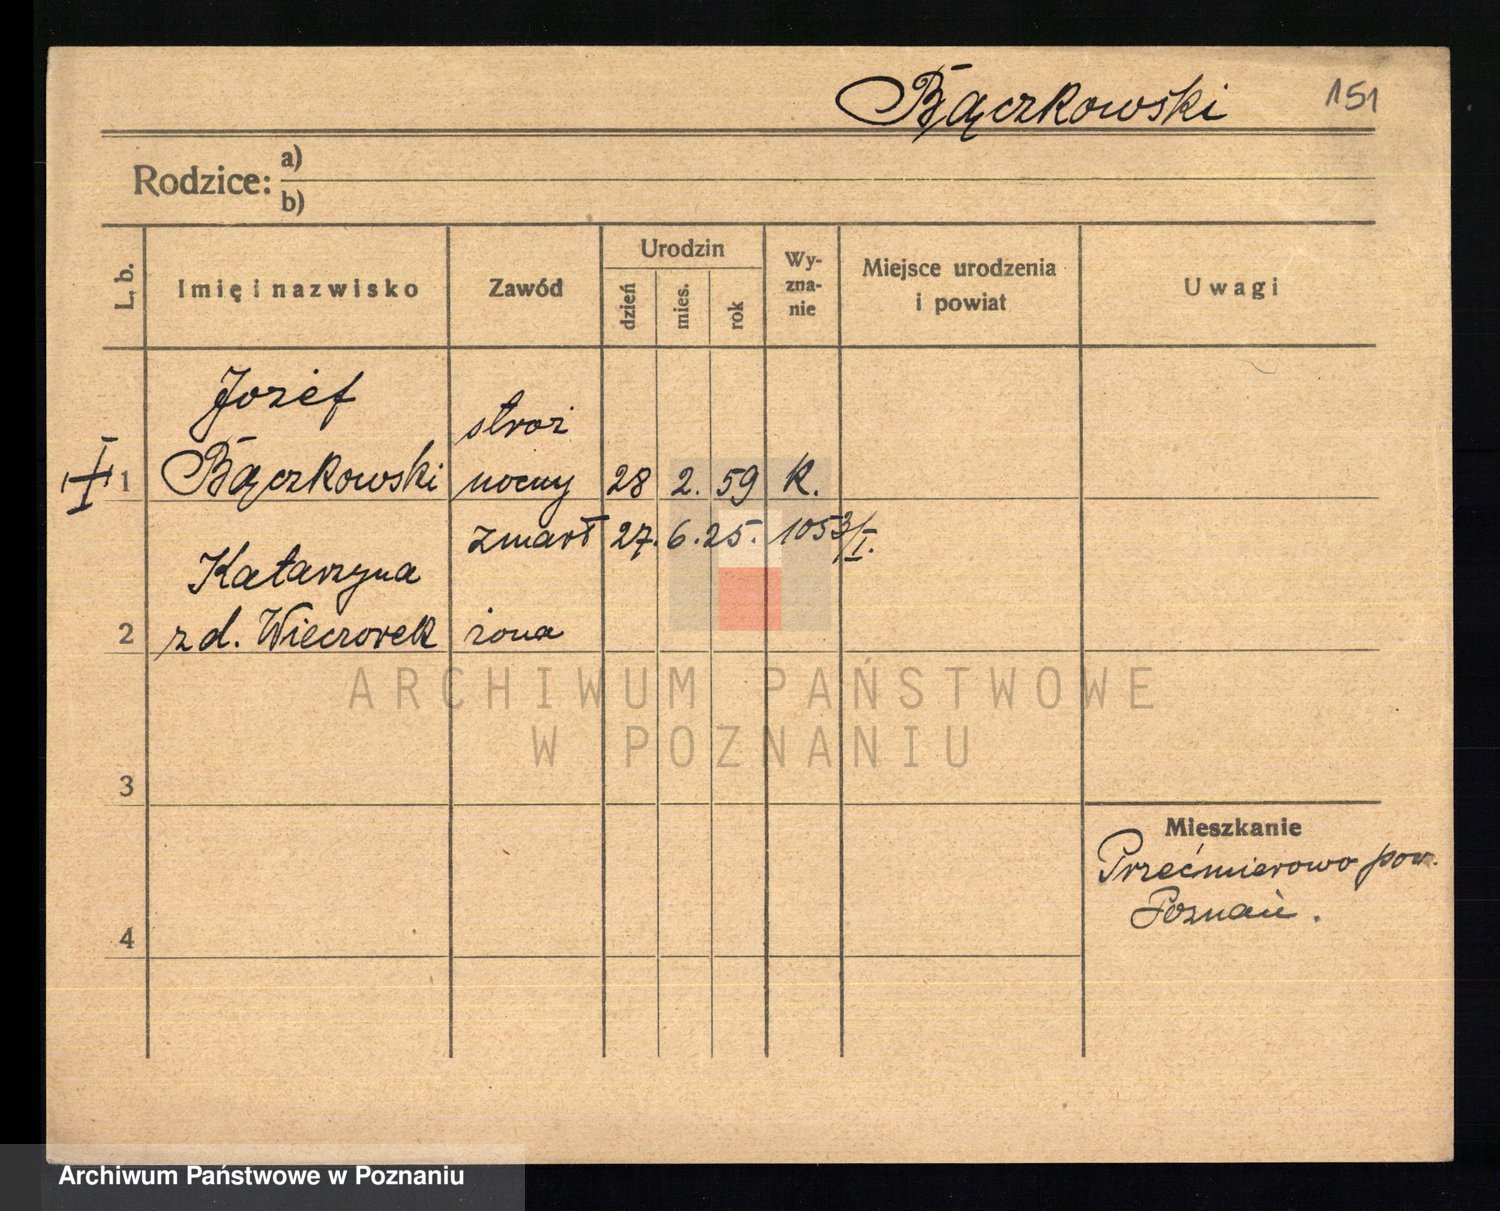 Bączkowski 151
Rodzice: a)
b)
L. b. Imię i nazwisko Zawód Urodzin dzień mies. rok Wy-zna-nie Miejsce urodzenia i powiat Uwagi
Józef stróż
1 Bączkowski nocny 28 2. 59 K.
zmarł 27. 6. 25. 1053/I.
Katarzyna
2 z d. Wieczorek żona
ARCHIWUM PAŃSTWOWE
W POZNANIU
3
Mieszkanie
Przećmierowo pow.
Poznań.
4
Archiwum Państwowe w Poznaniu